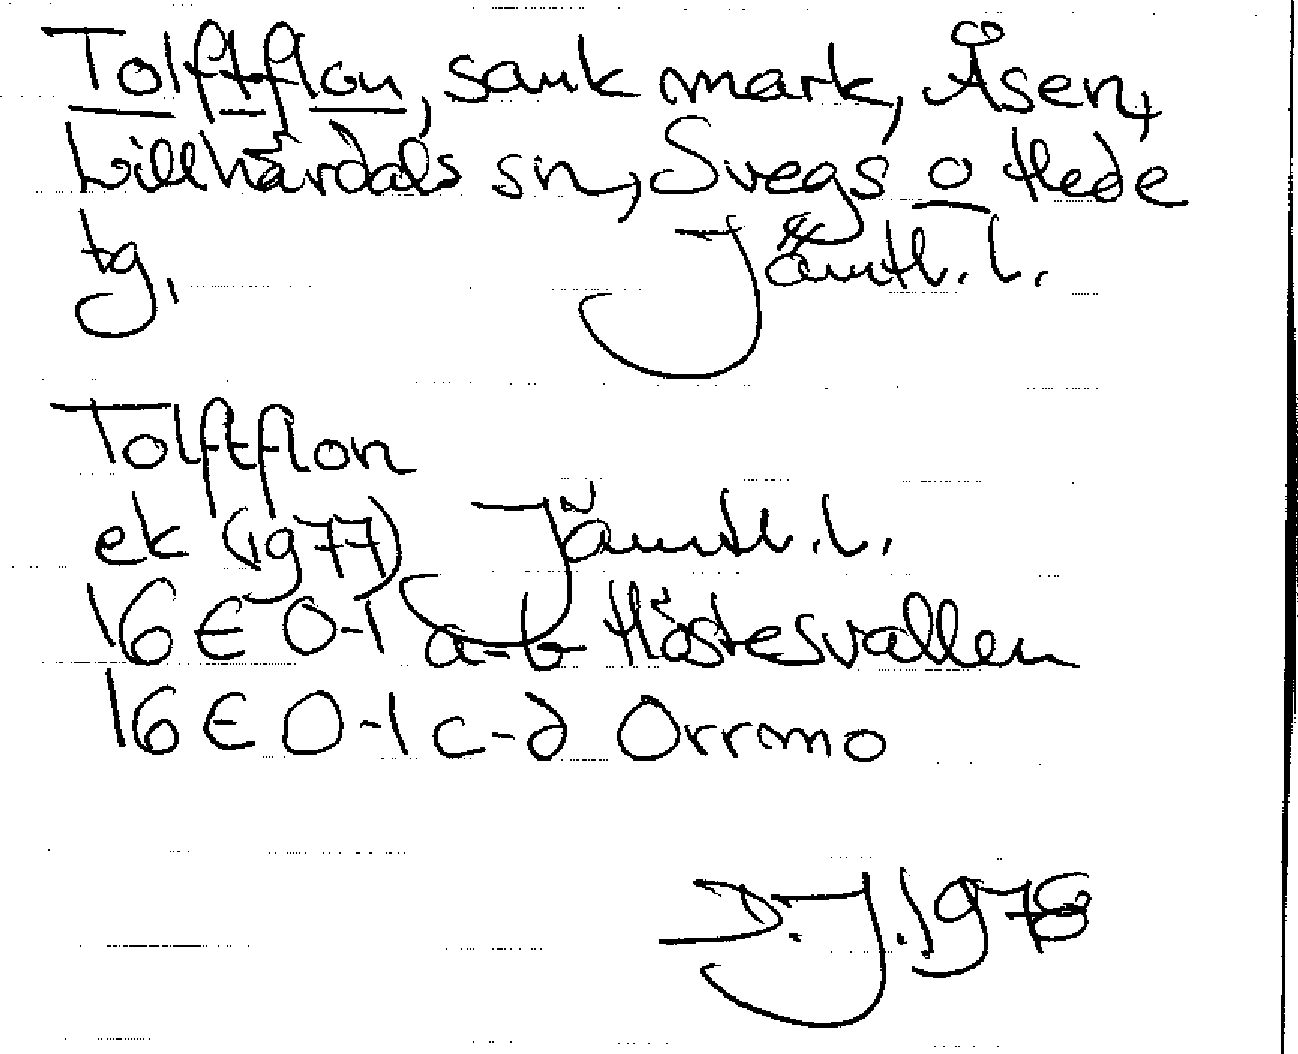 Tolftflon, sank mark, Åsen,
Lillhärdals sn, Svegs o Hede
tg, Jämtl. l.
Tolftflon
ek (1977) Jämtl. l.
16 E 0-1 a-b Höstesvallen
16 E 0-1 c-d Orrmo
D.J. 1978